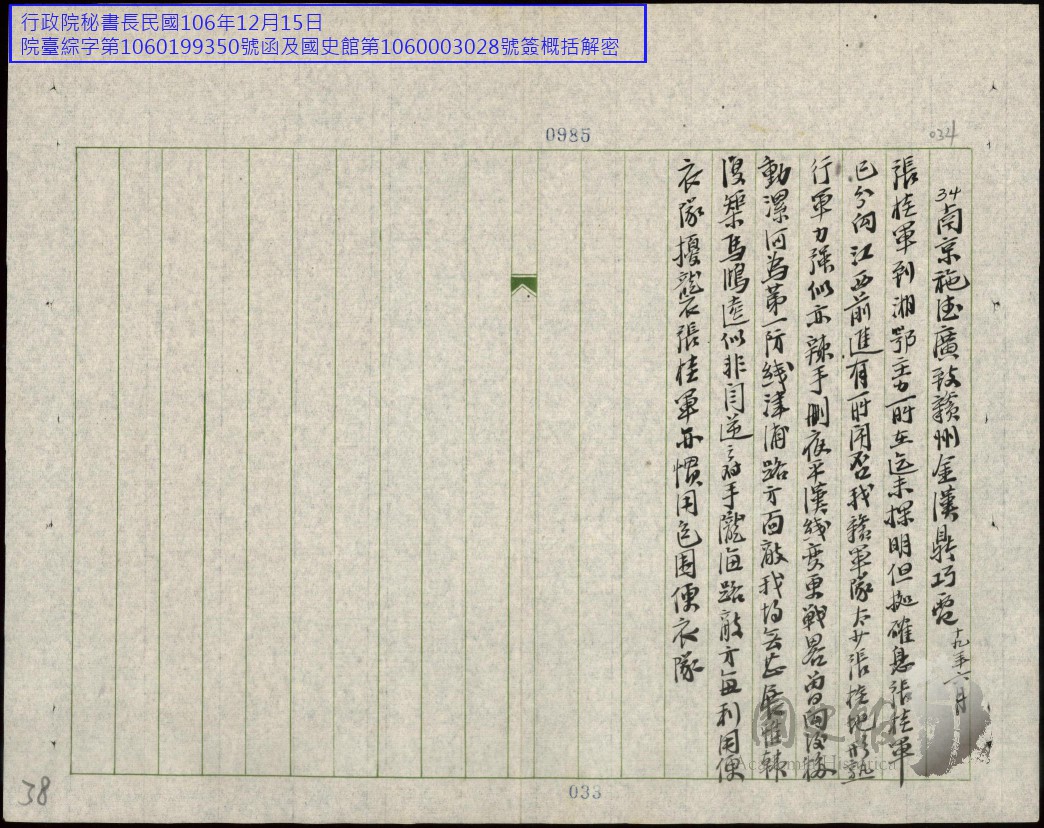 行政院秘書長民國106年12月15日
院臺綜字第1060199350號函及國史館第1060003028號簽概括解密
0985
034
34
南京施德廣致贛州金漢鼎巧電 十九年六月
張桂軍到湘鄂主力所在迄未探明但據確息張桂軍
已分向江西前進有所聞否我贛軍隊太少張桂地形熟
行軍力強似亦辣手刪夜平漢綫變更戰畧當向後移
動漯河為第一防綫津浦路方面敵我均無進展惟韓
復榘馬鴻逵似非閻逆之對手隴海路敵方每利用便
衣隊擾襲張桂軍亦慣用包圍便衣隊
國史館
Academia Historica
38
033